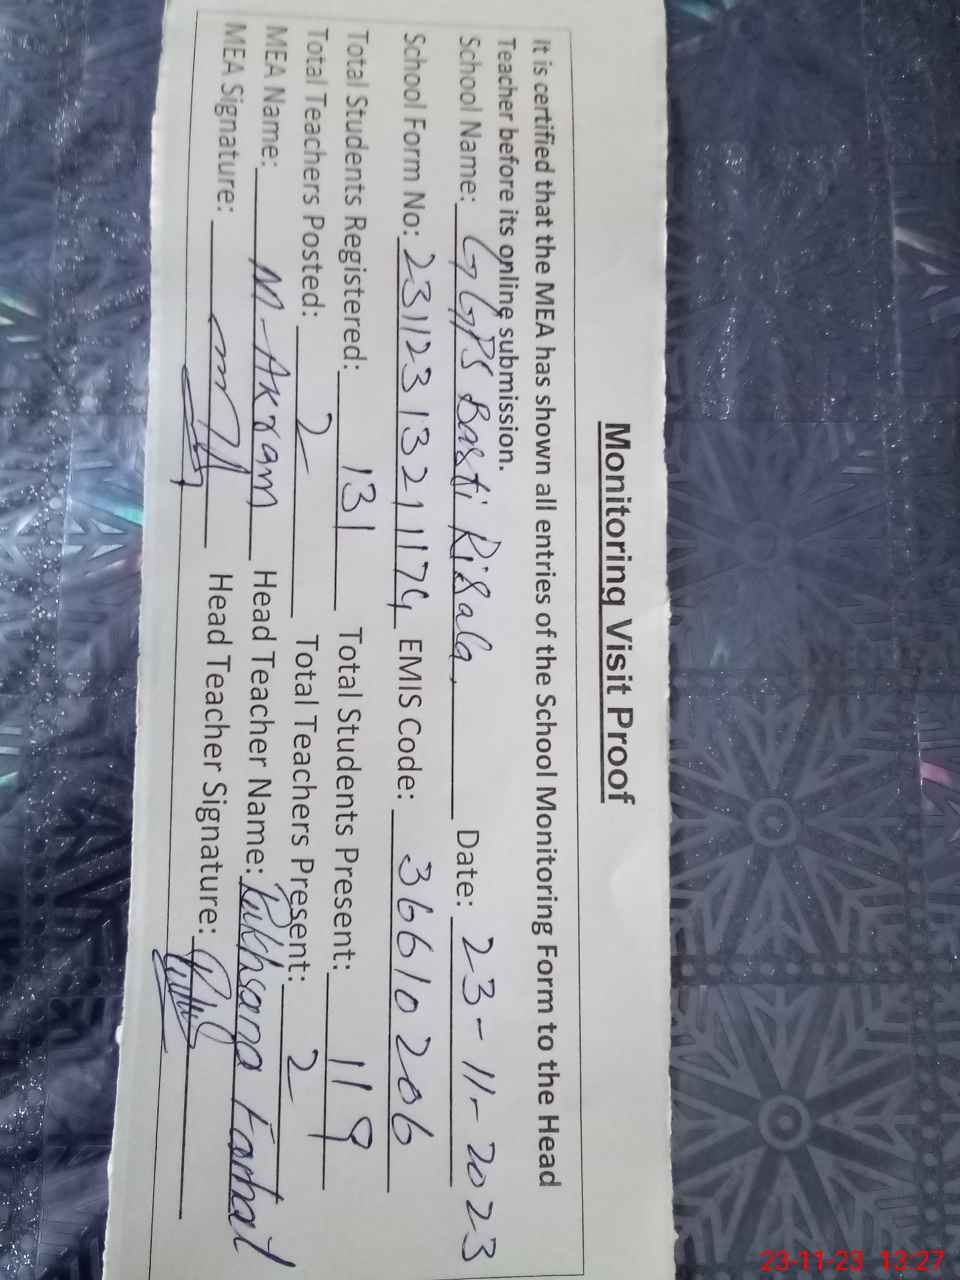 Monitoring Visit Proof
It is certified that the MEA has shown all entries of the School Monitoring Form to the Head
Teacher before its online submission.
School Name: GGPS Basti Risala Date: 23-11-2023
School Form No: 2311231321174 EMIS Code: 36610206
Total Students Registered: 131 Total Students Present: 119
Total Teachers Posted: 2 Total Teachers Present: 2
MEA Name: M-Akram Head Teacher Name: Rukhsana Farhat
MEA Signature: Head Teacher Signature:
23-11-23 13:27